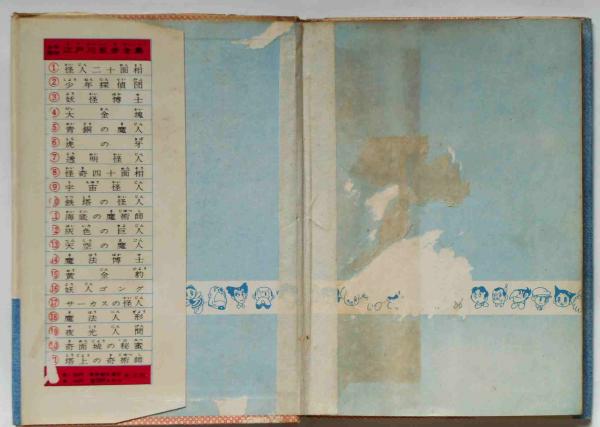 江戸川乱歩全集
① 怪人二十面相
② 少年探偵団
③ 妖怪博士
④ 大金塊
⑤ 青銅の魔人
⑥ 虎の牙
⑦ 透明怪人
⑧ 怪奇四十面相
⑨ 宇宙怪人
鉄塔の怪人
海底の魔術師
灰色の巨人
⑬ 天空の魔人
⑭ 魔法博士
⑮ 黄金豹
⑯ 妖人ゴング
⑰ サーカスの怪人
⑱ 魔法人形
⑲ 夜光人間
奇面城の秘密
塔上の奇術師